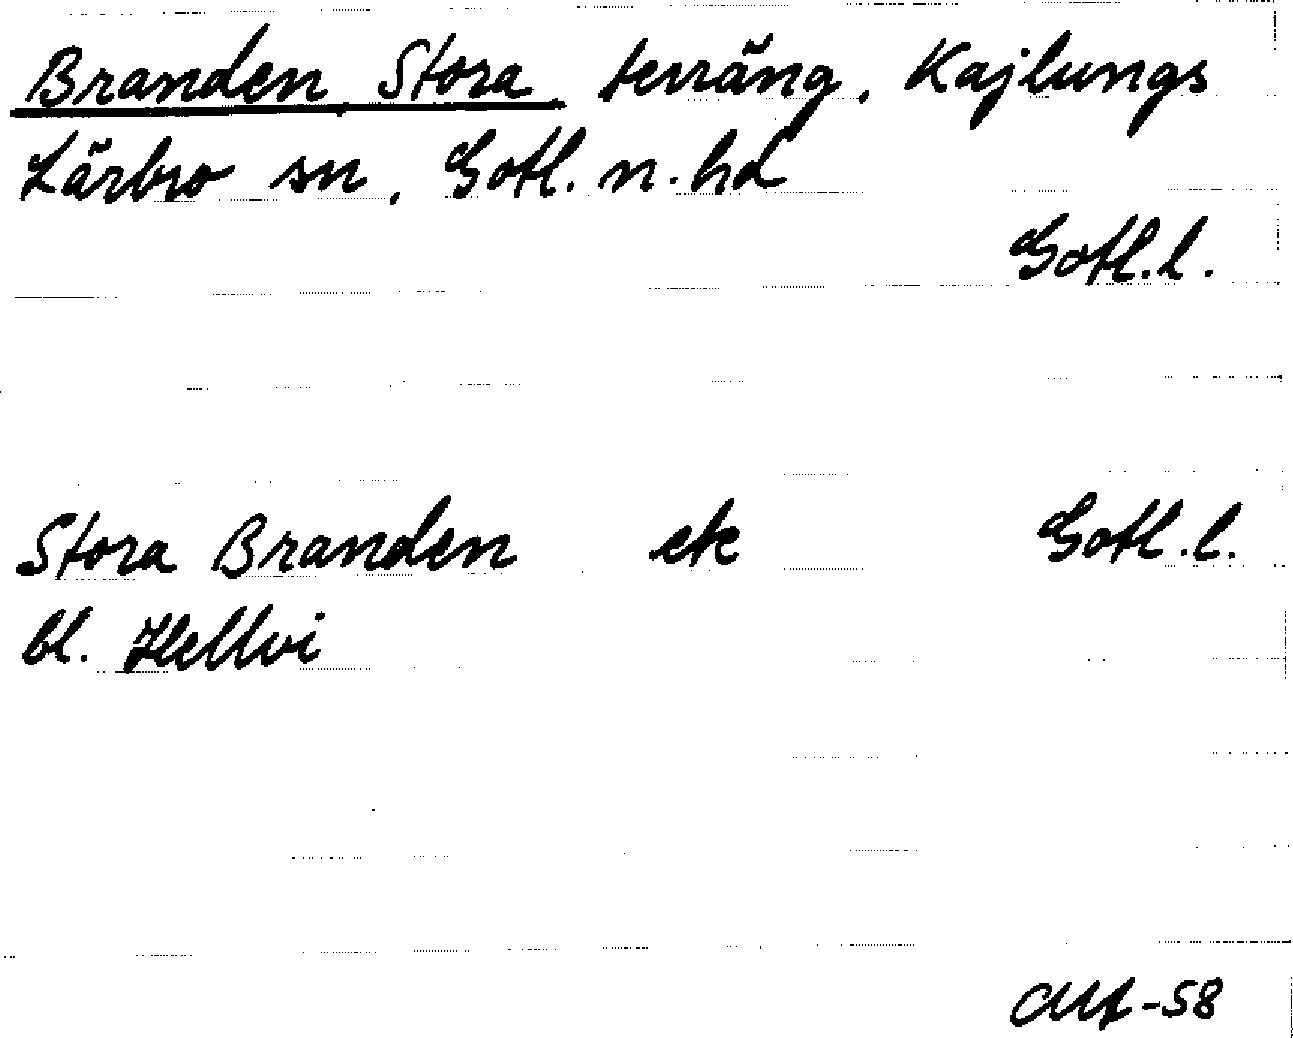 Branden, Stora terräng, Kajlungs
Lärbro sn, Gotl. n. hd
Gotl. l.
Stora Branden ek Gotl. l.
bl. Hellvi
-58